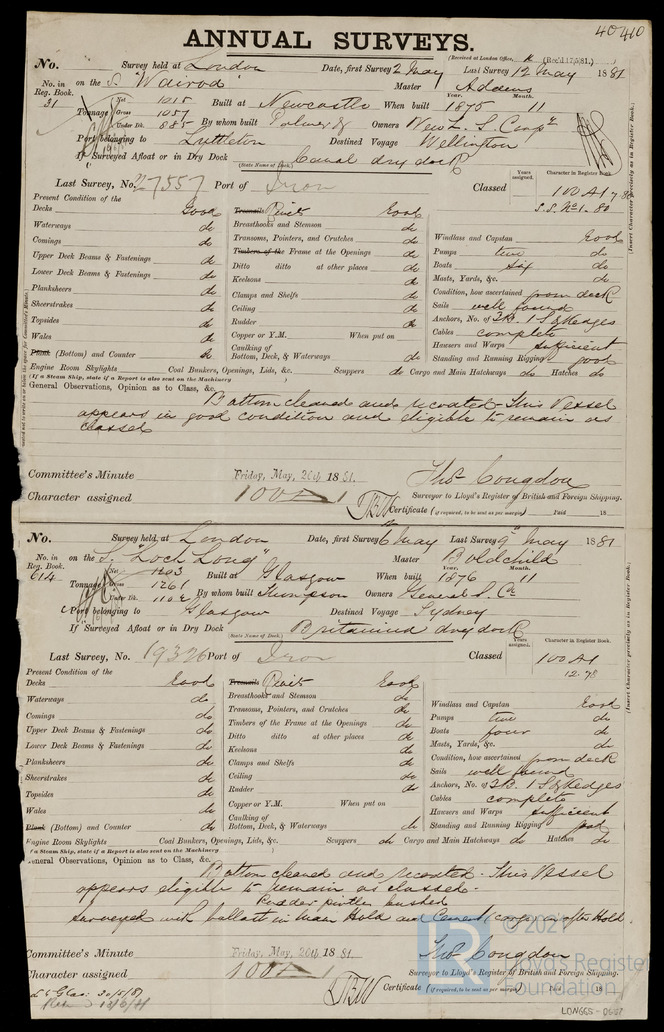 40410
ANNUAL SURVEYS.
(Received at London Office, 17.5.81.)
No. Survey held at London Date, first Survey 2 May Last Survey 12 May 1881
No. in Reg. Book. 31 on the S. "Wairoa" Master Adams
Tonnage Net 1015 Gross 1057 Under Dk. 885 Built at Newcastle When built Year. 1875 Month. 11
By whom built Palmer & Owners New Z. S. Comp.y
Port belonging to Lyttleton Destined Voyage Wellington
If Surveyed Afloat or in Dry Dock (State Name of Dock.) Canal dry dock
Last Survey, No. 27557 Port of Iron Classed Years assigned. Character in Register Book. 100 A1 7.80
S.S. No.1-80
(Insert Character precisely as in Register Book.)
Present Condition of the
Decks Good
Waterways do
Comings do
Upper Deck Beams & Fastenings do
Lower Deck Beams & Fastenings do
Planksheers do
Sheerstrakes do
Topsides do
Wales do
Plank (Bottom) and Counter do
Engine Room Skylights Coal Bunkers, Openings, Lids, &c. Scuppers do Cargo and Main Hatchways do Hatches do
Treenails Rivets Good
Breasthooks and Stemson do
Transoms, Pointers, and Crutches do
Timbers of the Frame at the Openings do
Ditto ditto at other places do
Keelsons do
Clamps and Shelfs do
Ceiling do
Rudder do
Copper or Y.M. When put on
Caulking of Bottom, Deck, & Waterways do
Windlass and Capstan Good
Pumps two do
Boats six do
Masts, Yards, &c. do
Condition, how ascertained from deck
Sails well found
Anchors, No. of 3B. 1 S & Kedges
Cables complete
Hawsers and Warps sufficient
Standing and Running Rigging good
(If a Steam Ship, state if a Report is also sent on the Machinery )
General Observations, Opinion as to Class, &c.
Bottom cleaned and recoated - This Vessel
appears in good condition and eligible to remain as
classed
Committee's Minute Friday, May, 20th 1881.
Character assigned 100 A 1
Thos. Congdon
Surveyor to Lloyd's Register of British and Foreign Shipping.
Certificate (if required, to be sent as per margin) Paid 18
No. Survey held at London Date, first Survey 6 May Last Survey 9 May 1881
No. in Reg. Book. 614 on the S. "Loch Long" Master Boldchild
Tonnage Net 1203 Gross 1261 Under Dk. 1102 Built at Glasgow When built Year. 1876 Month. 11
By whom built Thompson Owners General S. Co
Port belonging to Glasgow Destined Voyage Sydney
If Surveyed Afloat or in Dry Dock (State Name of Dock.) Britannia dry dock
Last Survey, No. 19326 Port of Iron Classed Years assigned. Character in Register Book. 100 A1
12.78
(Insert Character precisely as in Register Book.)
Present Condition of the
Decks Good
Waterways do
Comings do
Upper Deck Beams & Fastenings do
Lower Deck Beams & Fastenings do
Planksheers do
Sheerstrakes do
Topsides do
Wales do
Plank (Bottom) and Counter do
Engine Room Skylights Coal Bunkers, Openings, Lids, &c. Scuppers do Cargo and Main Hatchways do Hatches do
Treenails Rivets Good
Breasthooks and Stemson do
Transoms, Pointers, and Crutches do
Timbers of the Frame at the Openings do
Ditto ditto at other places do
Keelsons do
Clamps and Shelfs do
Ceiling do
Rudder do
Copper or Y.M. When put on
Caulking of Bottom, Deck, & Waterways do
Windlass and Capstan Good
Pumps two do
Boats four do
Masts, Yards, &c. do
Condition, how ascertained from deck
Sails well found
Anchors, No. of 3B. 1 S & Kedges
Cables complete
Hawsers and Warps sufficient
Standing and Running Rigging good
(If a Steam Ship, state if a Report is also sent on the Machinery )
General Observations, Opinion as to Class, &c.
Bottom cleaned and recoated - This Vessel
appears eligible to remain as classed -
Rudder pintles bushed
Surveyed with ballast in Main Hold and Cement cargo in after Hold
Committee's Minute Friday, May, 20th 1881.
Character assigned 100 A 1
Thos. Congdon
Surveyor to Lloyd's Register of British and Foreign Shipping.
Certificate (if required, to be sent as per margin) Paid 18
© 2021
Lloyd's Register
Foundation
LR
LONGGS-0687